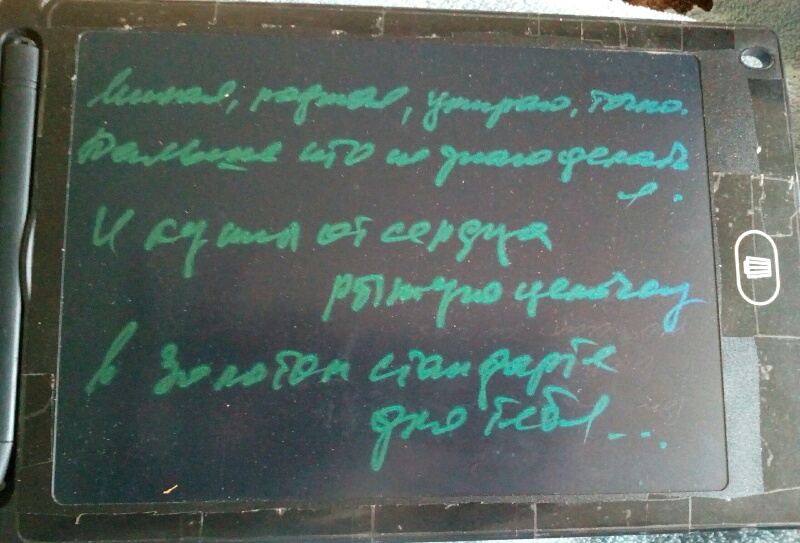 Милая, родная, умираю, точно.
Дальше что и знаю делать
я.
И купил от сердца
рыжую цепочку
в Золотом стандарте
для тебя...